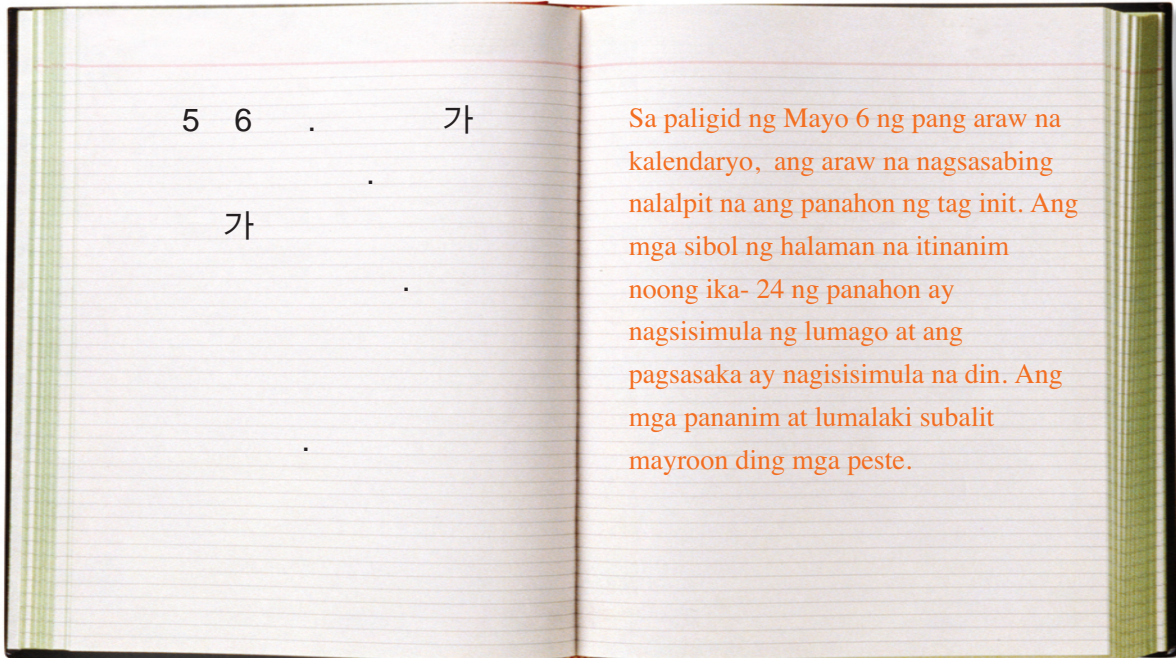 5 6 . 가
.
가
.
.
Sa paligid ng Mayo 6 ng pang araw na
kalendaryo, ang araw na nagsasabing
nalalpit na ang panahon ng tag init. Ang
mga sibol ng halaman na itinanim
noong ika- 24 ng panahon ay
nagsisimula ng lumago at ang
pagsasaka ay nagisisimula na din. Ang
mga pananim at lumalaki subalit
mayroon ding mga peste.